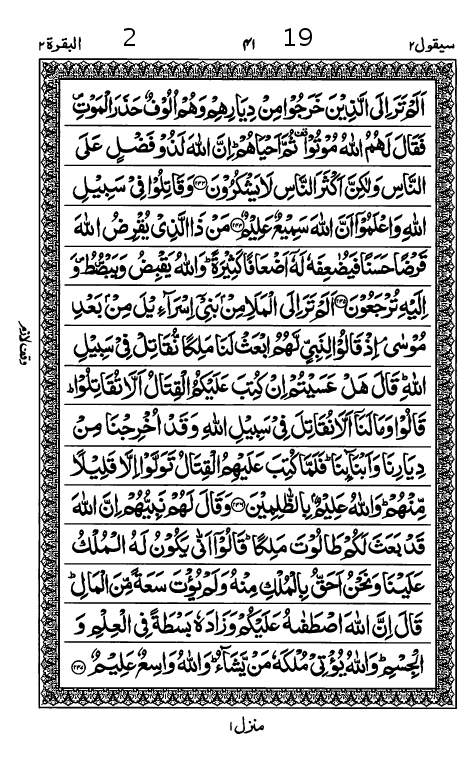 سيقول ٢ 19 ٤١ 2 البقرة ٢
اَلَمْ تَرَ اِلَى الَّذِيْنَ خَرَجُوْا مِنْ دِيَارِهِمْ وَهُمْ اُلُوْفٌ حَذَرَ الْمَوْتِ
فَقَالَ لَهُمُ اللّٰهُ مُوْتُوْا ثُمَّ اَحْيَاهُمْ ؕ اِنَّ اللّٰهَ لَذُوْ فَضْلٍ عَلَى
النَّاسِ وَلٰكِنَّ اَكْثَرَ النَّاسِ لَا يَشْكُرُوْنَ ﴿۲۴۳﴾ وَقَاتِلُوْا فِيْ سَبِيْلِ
اللّٰهِ وَاعْلَمُوْۤا اَنَّ اللّٰهَ سَمِيْعٌ عَلِيْمٌ ﴿۲۴۴﴾ مَنْ ذَا الَّذِيْ يُقْرِضُ اللّٰهَ
قَرْضًا حَسَنًا فَيُضٰعِفَهٗ لَهٗۤ اَضْعَافًا كَثِيْرَةً ؕ وَاللّٰهُ يَقْبِضُ وَيَبْصُۜطُ ۪ وَ
اِلَيْهِ تُرْجَعُوْنَ ﴿۲۴۵﴾ اَلَمْ تَرَ اِلَى الْمَلَاِ مِنْۢ بَنِيْۤ اِسْرَآءِيْلَ مِنْۢ بَعْدِ
مُوْسٰى ۘ اِذْ قَالُوْا لِنَبِيٍّ لَّهُمُ ابْعَثْ لَنَا مَلِكًا نُّقَاتِلْ فِيْ سَبِيْلِ
اللّٰهِ ؕ قَالَ هَلْ عَسَيْتُمْ اِنْ كُتِبَ عَلَيْكُمُ الْقِتَالُ اَلَّا تُقَاتِلُوْا ؕ
قَالُوْا وَمَا لَنَاۤ اَلَّا نُقَاتِلَ فِيْ سَبِيْلِ اللّٰهِ وَقَدْ اُخْرِجْنَا مِنْ
دِيَارِنَا وَاَبْنَآئِنَا ؕ فَلَمَّا كُتِبَ عَلَيْهِمُ الْقِتَالُ تَوَلَّوْا اِلَّا قَلِيْلًا
مِّنْهُمْ ؕ وَاللّٰهُ عَلِيْمٌۢ بِالظّٰلِمِيْنَ ﴿۲۴۶﴾ وَقَالَ لَهُمْ نَبِيُّهُمْ اِنَّ اللّٰهَ
قَدْ بَعَثَ لَكُمْ طَالُوْتَ مَلِكًا ؕ قَالُوْۤا اَنّٰى يَكُوْنُ لَهُ الْمُلْكُ
عَلَيْنَا وَنَحْنُ اَحَقُّ بِالْمُلْكِ مِنْهُ وَلَمْ يُؤْتَ سَعَةً مِّنَ الْمَالِ ؕ
قَالَ اِنَّ اللّٰهَ اصْطَفٰىهُ عَلَيْكُمْ وَزَادَهٗ بَسْطَةً فِي الْعِلْمِ وَ
الْجِسْمِ ؕ وَاللّٰهُ يُؤْتِيْ مُلْكَهٗ مَنْ يَّشَآءُ ؕ وَاللّٰهُ وَاسِعٌ عَلِيْمٌ ﴿۲۴۷﴾
وقف لازم
منزل ١